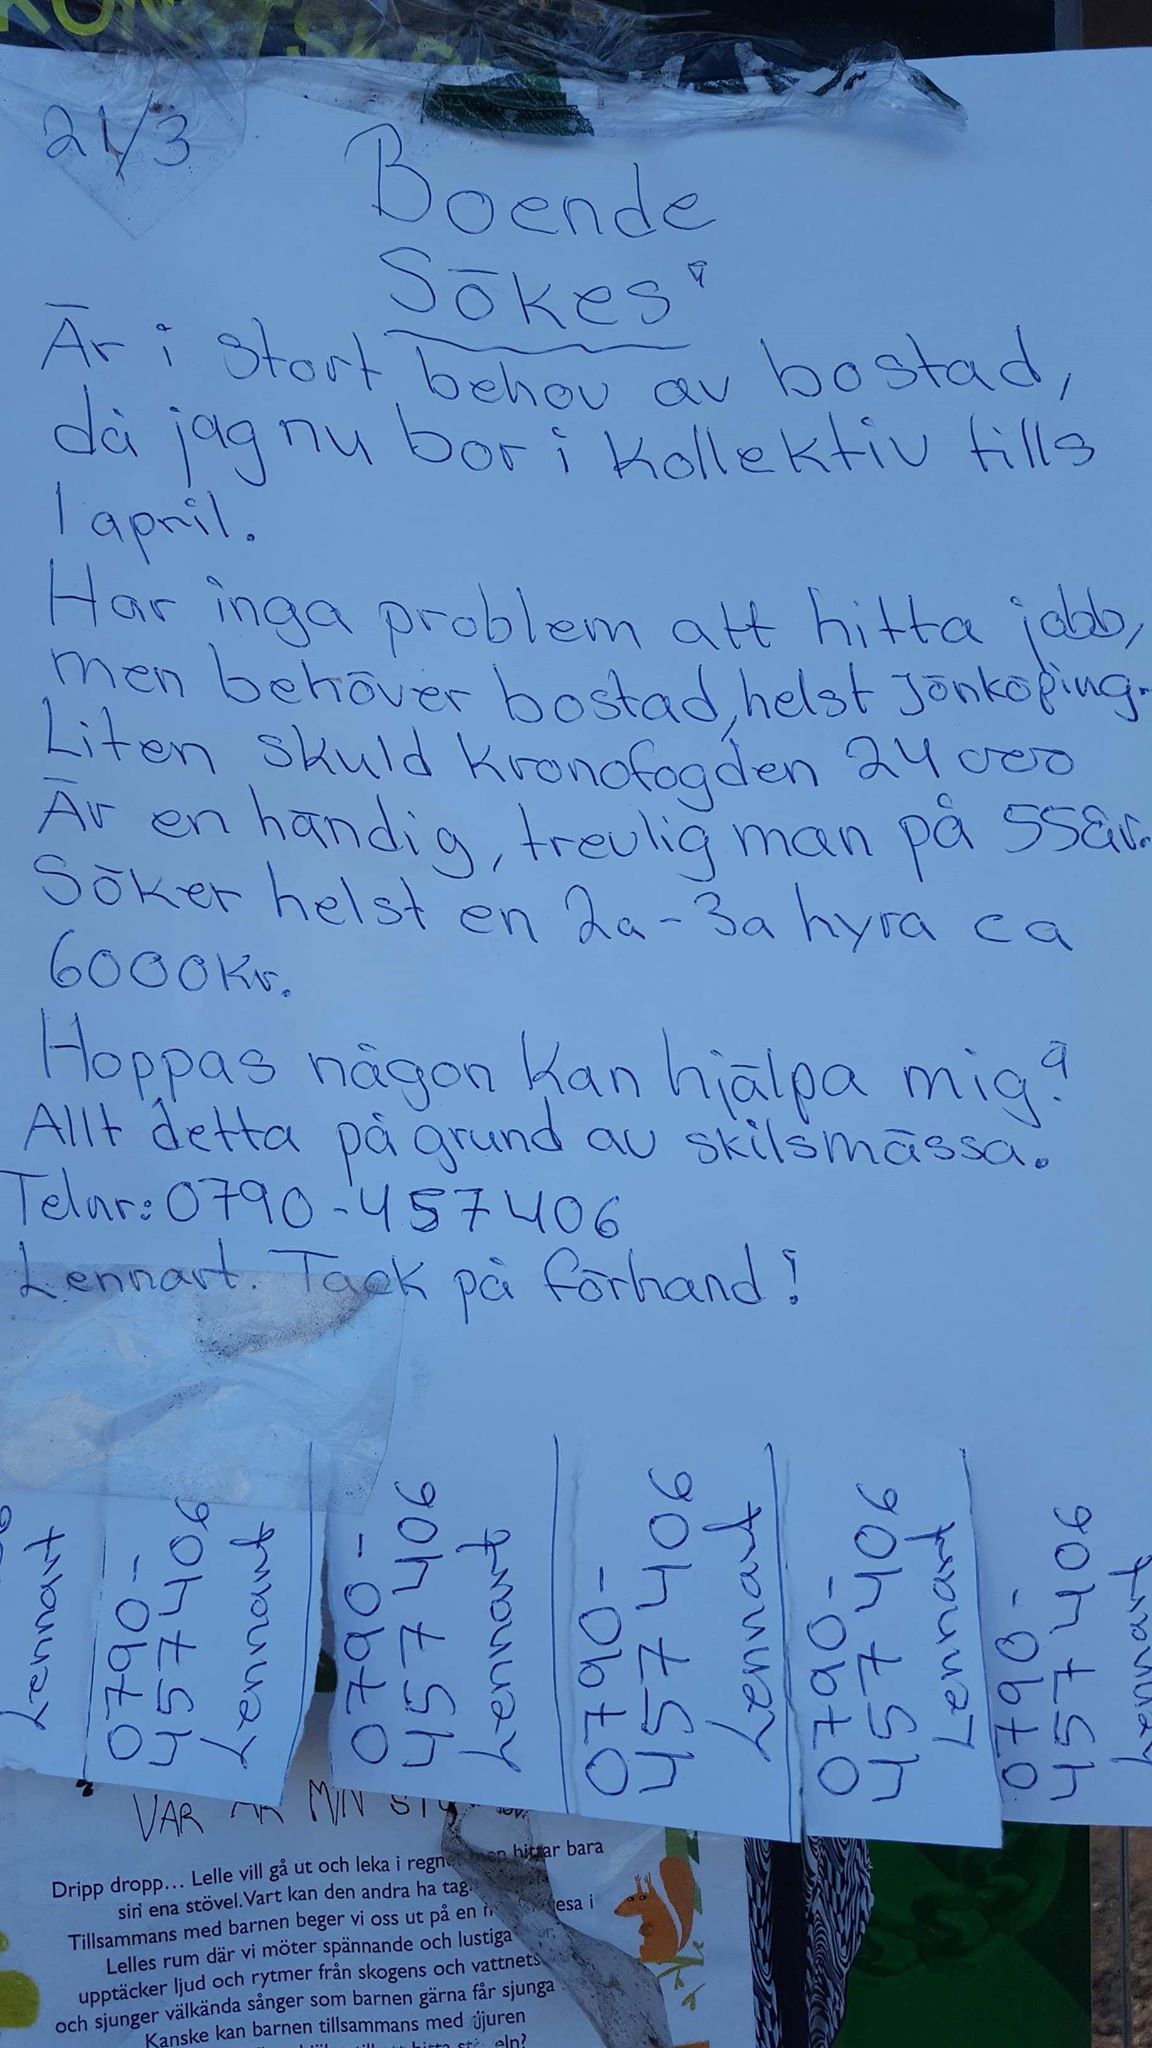 21/3
Boende
Sökes!
Är i stort behov av bostad,
då jag nu bor i kollektiv tills
1 april.
Har inga problem att hitta jobb,
men behöver bostad, helst Jönköping.
Liten skuld kronofogden 24 000
Är en händig, trevlig man på 55år.
Söker helst en 2a-3a hyra ca
6000kr.
Hoppas någon kan hjälpa mig?
Allt detta på grund av skilsmässa.
Telnr: 0790-457406
Lennart. Tack på förhand!
Lennart
0790-
457406
Lennart
0790-
457406
Lennart
0790-
457406
Lennart
0790-
457406
Lennart
0790-
457406
Lennart
VAR ÄR MIN
Dripp dropp... Lelle vill gå ut och leka i hittar bara
sin ena stövel. Vart kan den andra ha
Tillsammans med barnen beger vi oss ut på en
Lelles rum där vi möter spännande och lustiga
upptäcker ljud och rytmer från skogens och
och sjunger välkända sånger som barnen gärna får sjunga
Kanske kan barnen tillsammans med djuren